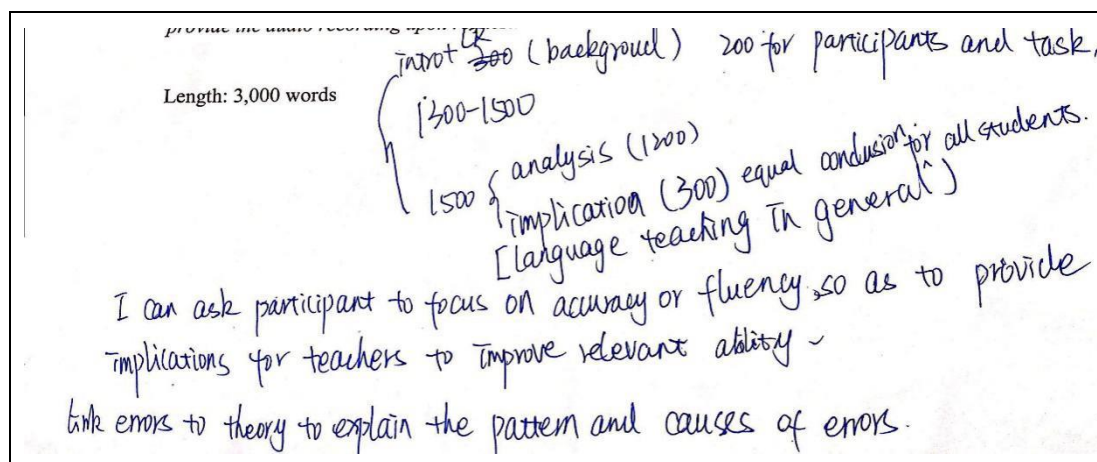 provide the audio recording upon
intro+ LR 300 (backgroud) 200 for participants and task.
Length: 3,000 words
1300-1500
1500 { analysis (1200)
implication (300) equal conclusion for all students.
[language teaching in general^)
I can ask participant to focus on accuracy or fluency, so as to provide
implications for teachers to improve relevant ability
link errors to theory to explain the pattern and causes of errors.